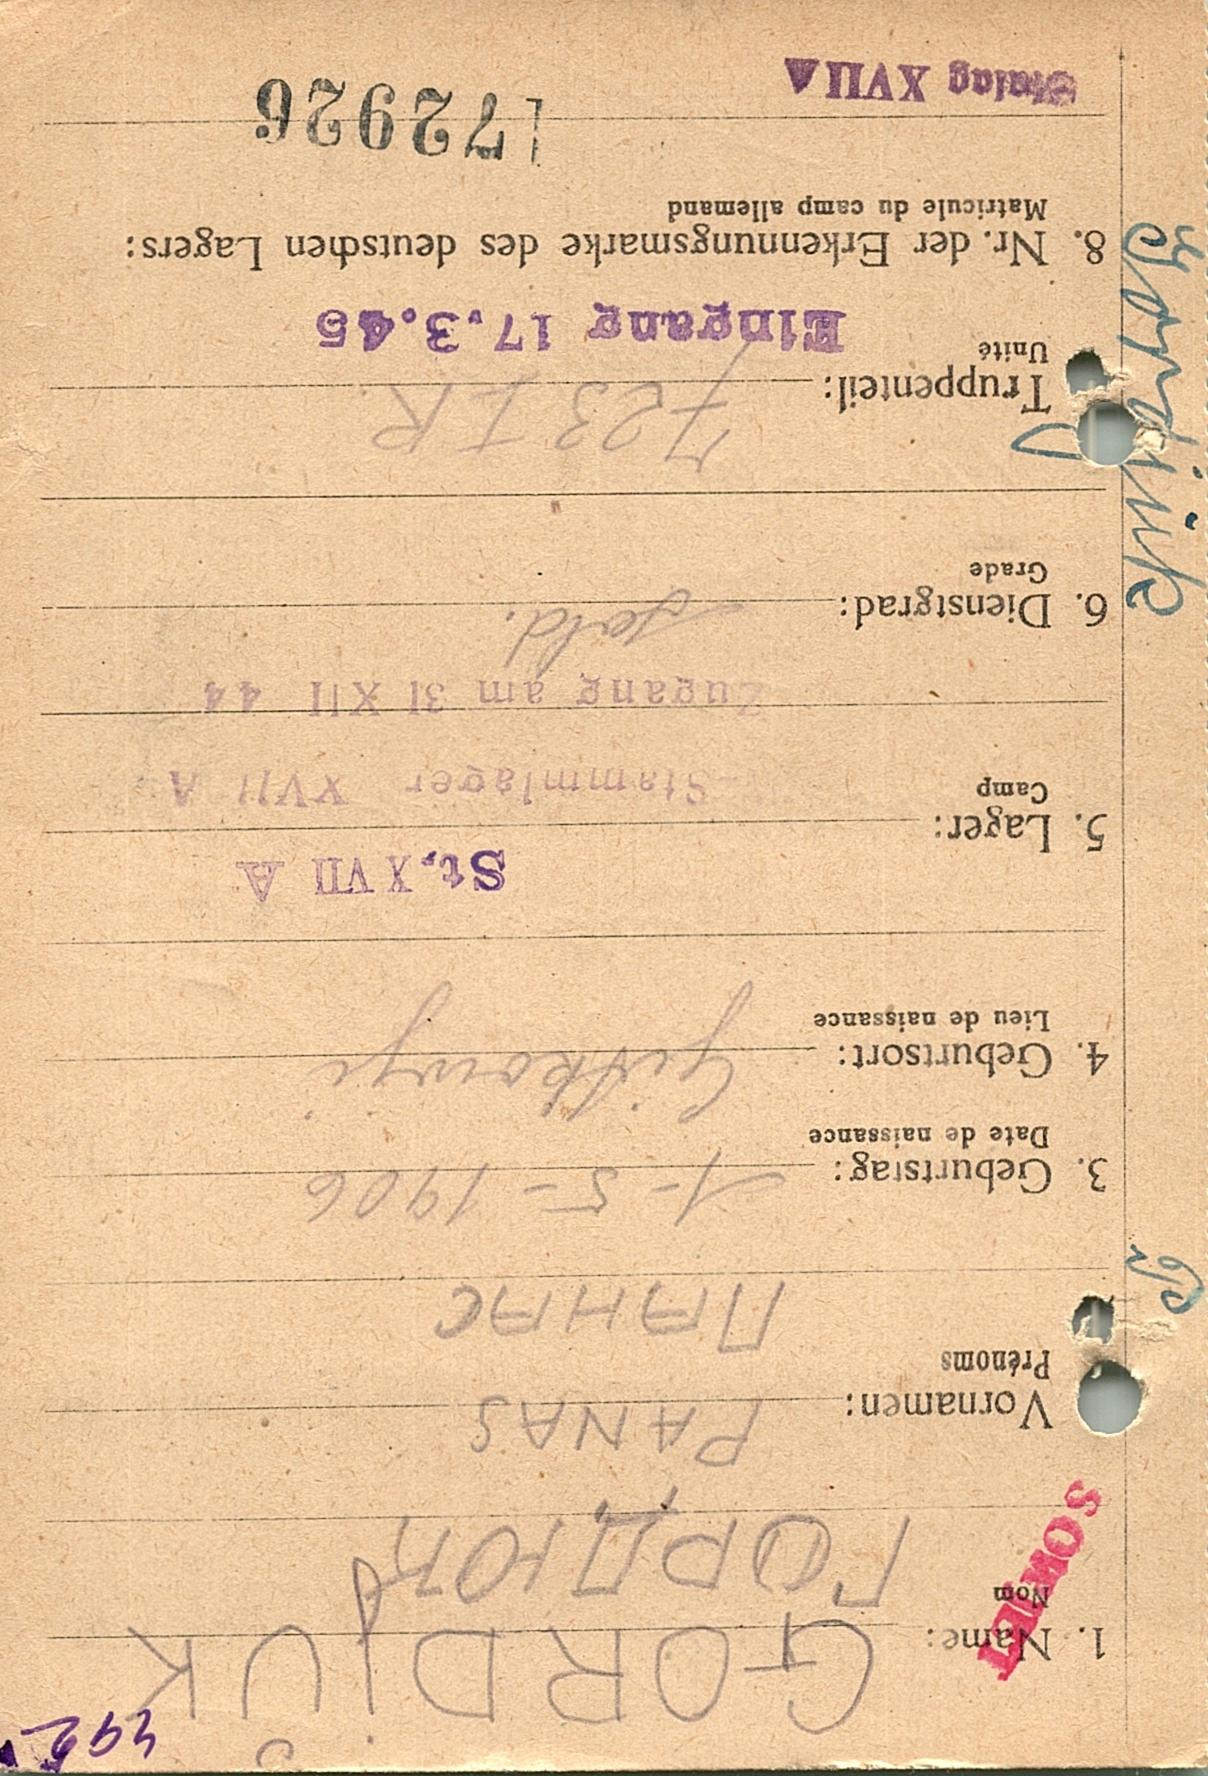 392
SOWJET
1. Name: GORDJUK
Nom
ГОРДЮК
Vornamen: PANAS
Prénoms
ПАНАС
3. Geburtstag: 1-5-1906
Date de naissance
4. Geburtsort:
Lieu de naissance
St. XVII A
5. Lager: Stammlager XVII A
Camp
Zugang am 31 XII 44
6. Dienstgrad: Sold.
Grade
Truppenteil: 723 I R
Unité
Eingang 17.3.45
8. Nr. der Erkennungsmarke des deutschen Lagers:
Matricule du camp allemand
172926
Stalag XVII A
Gordjuk